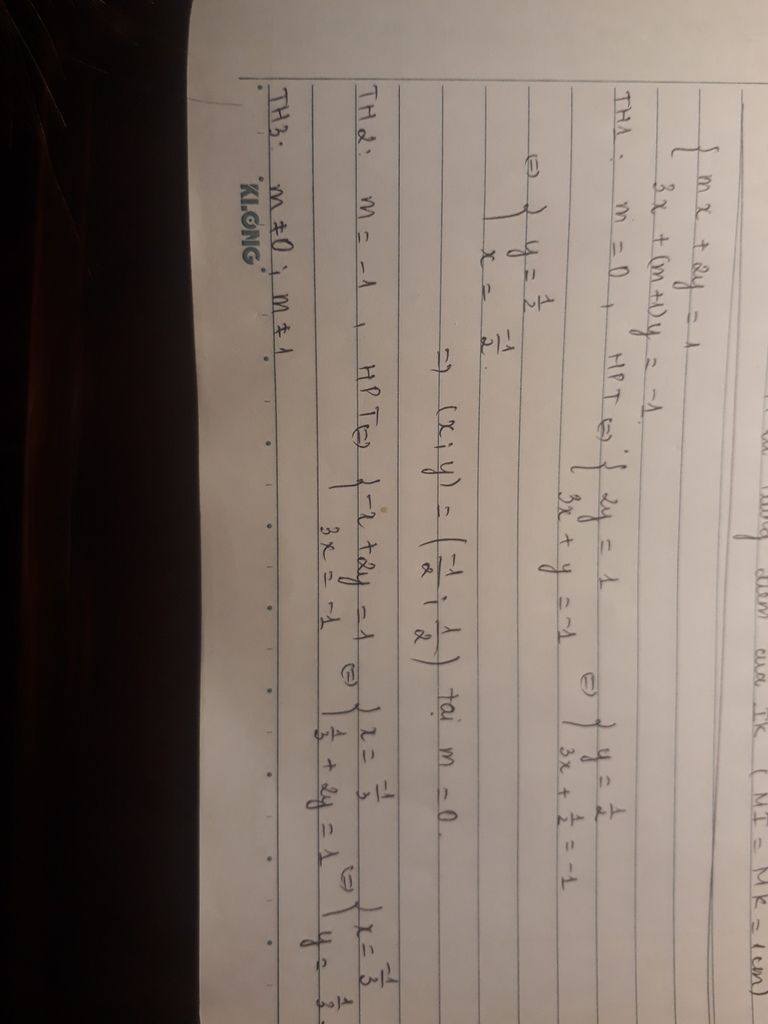 điểm của IK (MI = MK = 1cm)
{ mx + 2y = 1
3x + (m+1)y = -1
TH1: m = 0, HPT ⇔ { 2y = 1 ⇔ { y = 1/2
3x + y = -1 3x + 1/2 = -1
⇔ { y = 1/2
x = -1/2.
⇒ (x; y) = (-1/2; 1/2) tại m = 0.
TH2: m = -1, HPT ⇔ { -x + 2y = 1 ⇔ { x = -1/3 ⇔ { x = -1/3
3x = -1 1/3 + 2y = 1 y = 1/3.
TH3: m ≠ 0; m ≠ 1
KLONG